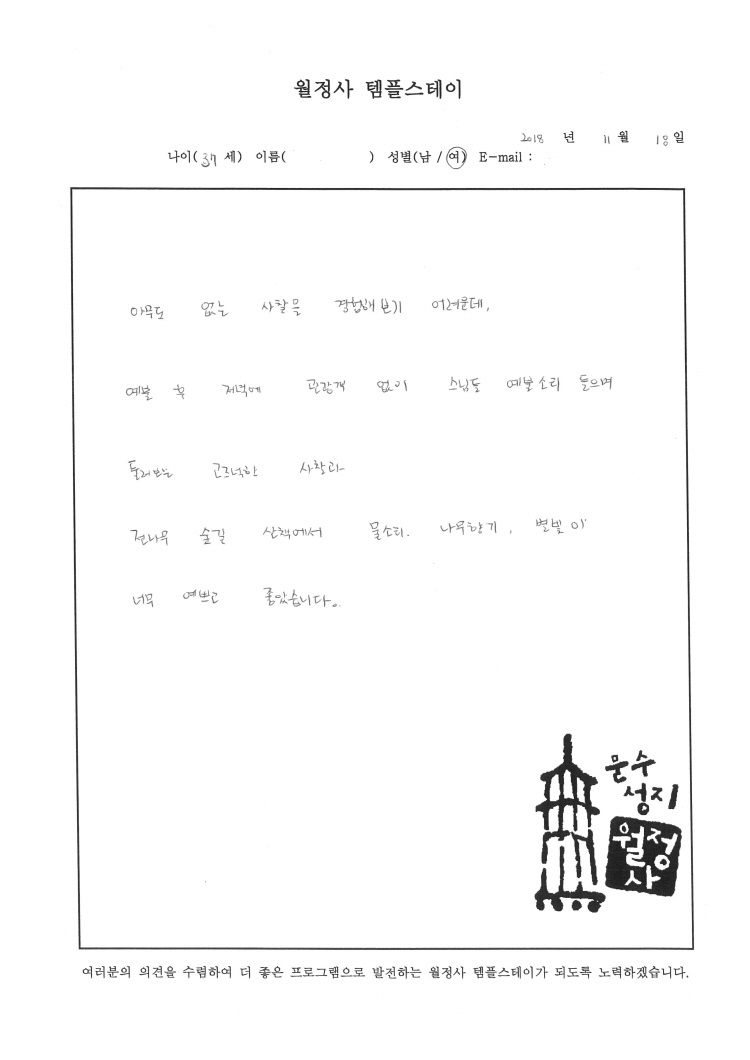 월정사 템플스테이
2018 년 11 월 18 일
나이( 37 세) 이름( ) 성별(남 / 여) E-mail :
아무도 없는 사찰을 경험해 보기 어려운데,
예불 후 저녁에 관광객 없이 스님들 예불소리 들으며
둘러보는 고즈넉한 사찰과
전나무 숲길 산책에서 물소리. 나무향기, 별빛이
너무 예쁘고 좋았습니다.
문수
성지
월정
사
여러분의 의견을 수렴하여 더 좋은 프로그램으로 발전하는 월정사 템플스테이가 되도록 노력하겠습니다.